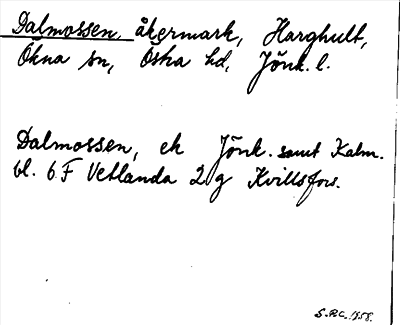 Dalmossen, åkermark, Harghult,
Ökna sn, Östra hd, Jönk. l.
Dalmossen, ek Jönk. samt Kalm.
bl. 6 F Vetlanda 2 g Kvillsfors.
S.R.C. 1958.